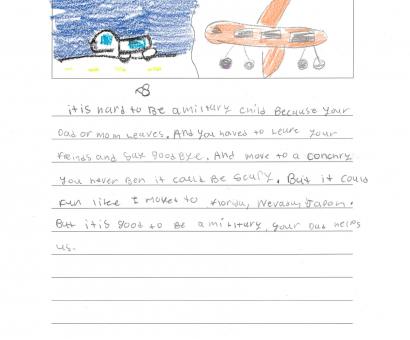 it is hard to Be a military child Because your
Dad or mom Leaves. And you haved to Leave your
friends and say Goodbye. And move to a conchry
you never Ben it could Be scury. But it could
fun like I moved to Florida, Nevada, Japan.
But it is good to Be a military, your Dad helps
us.